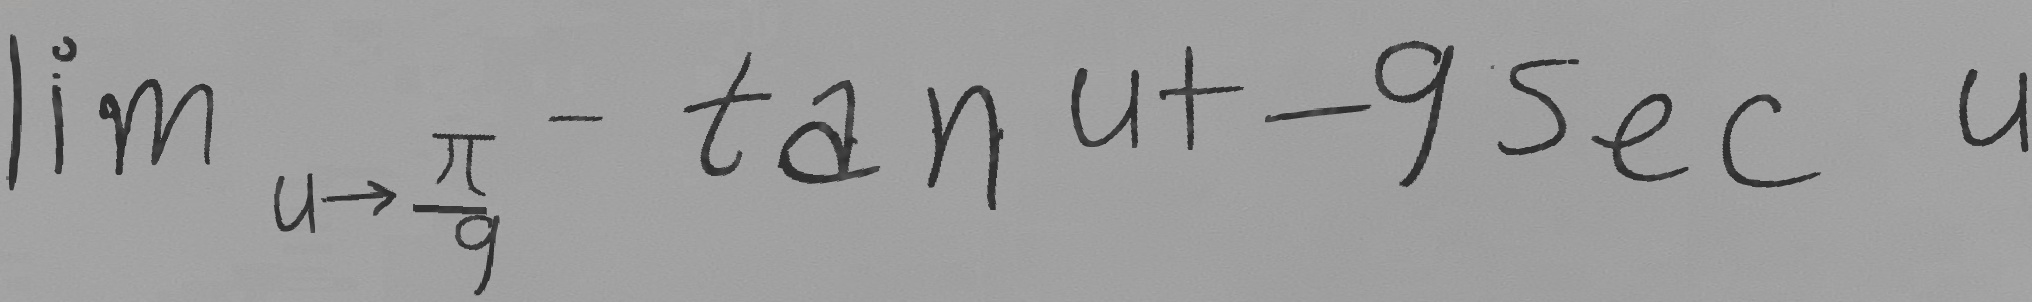 \lim_{u \to \frac{\pi}{9}} -\tan u + -9 \sec u